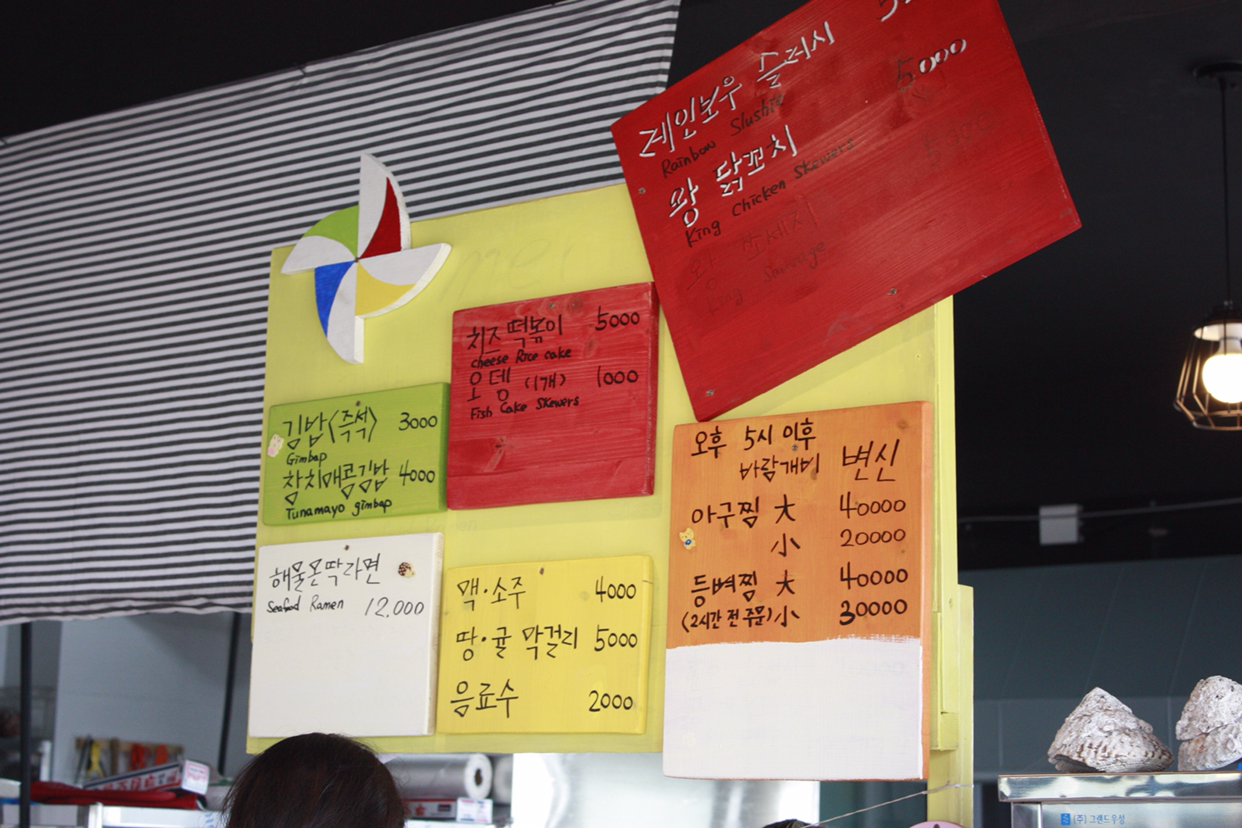 레인보우 슬러시
Rainbow Slushie
5000
왕 닭꼬치
King Chicken Skewers
왕 소세지
King Sausage
치즈 떡볶이 5000
cheese Rice cake
오뎅 (1개) 1000
Fish Cake Skewers
김밥(즉석) 3000
Gimbap
참치매콤김밥 4000
Tunamayo gimbap
오후 5시 이후
바람개비 변신
아구찜 大 40000
小 20000
등벼찜 大 40000
(2시간 전 주문) 小 30000
해물몬딱라면
Seafood Ramen 12,000
맥·소주 4000
땅·귤 막걸리 5000
음료수 2000
(주)그랜드우성